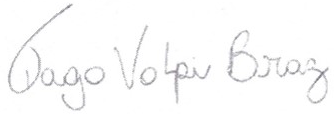 Tiago Volpi Braz